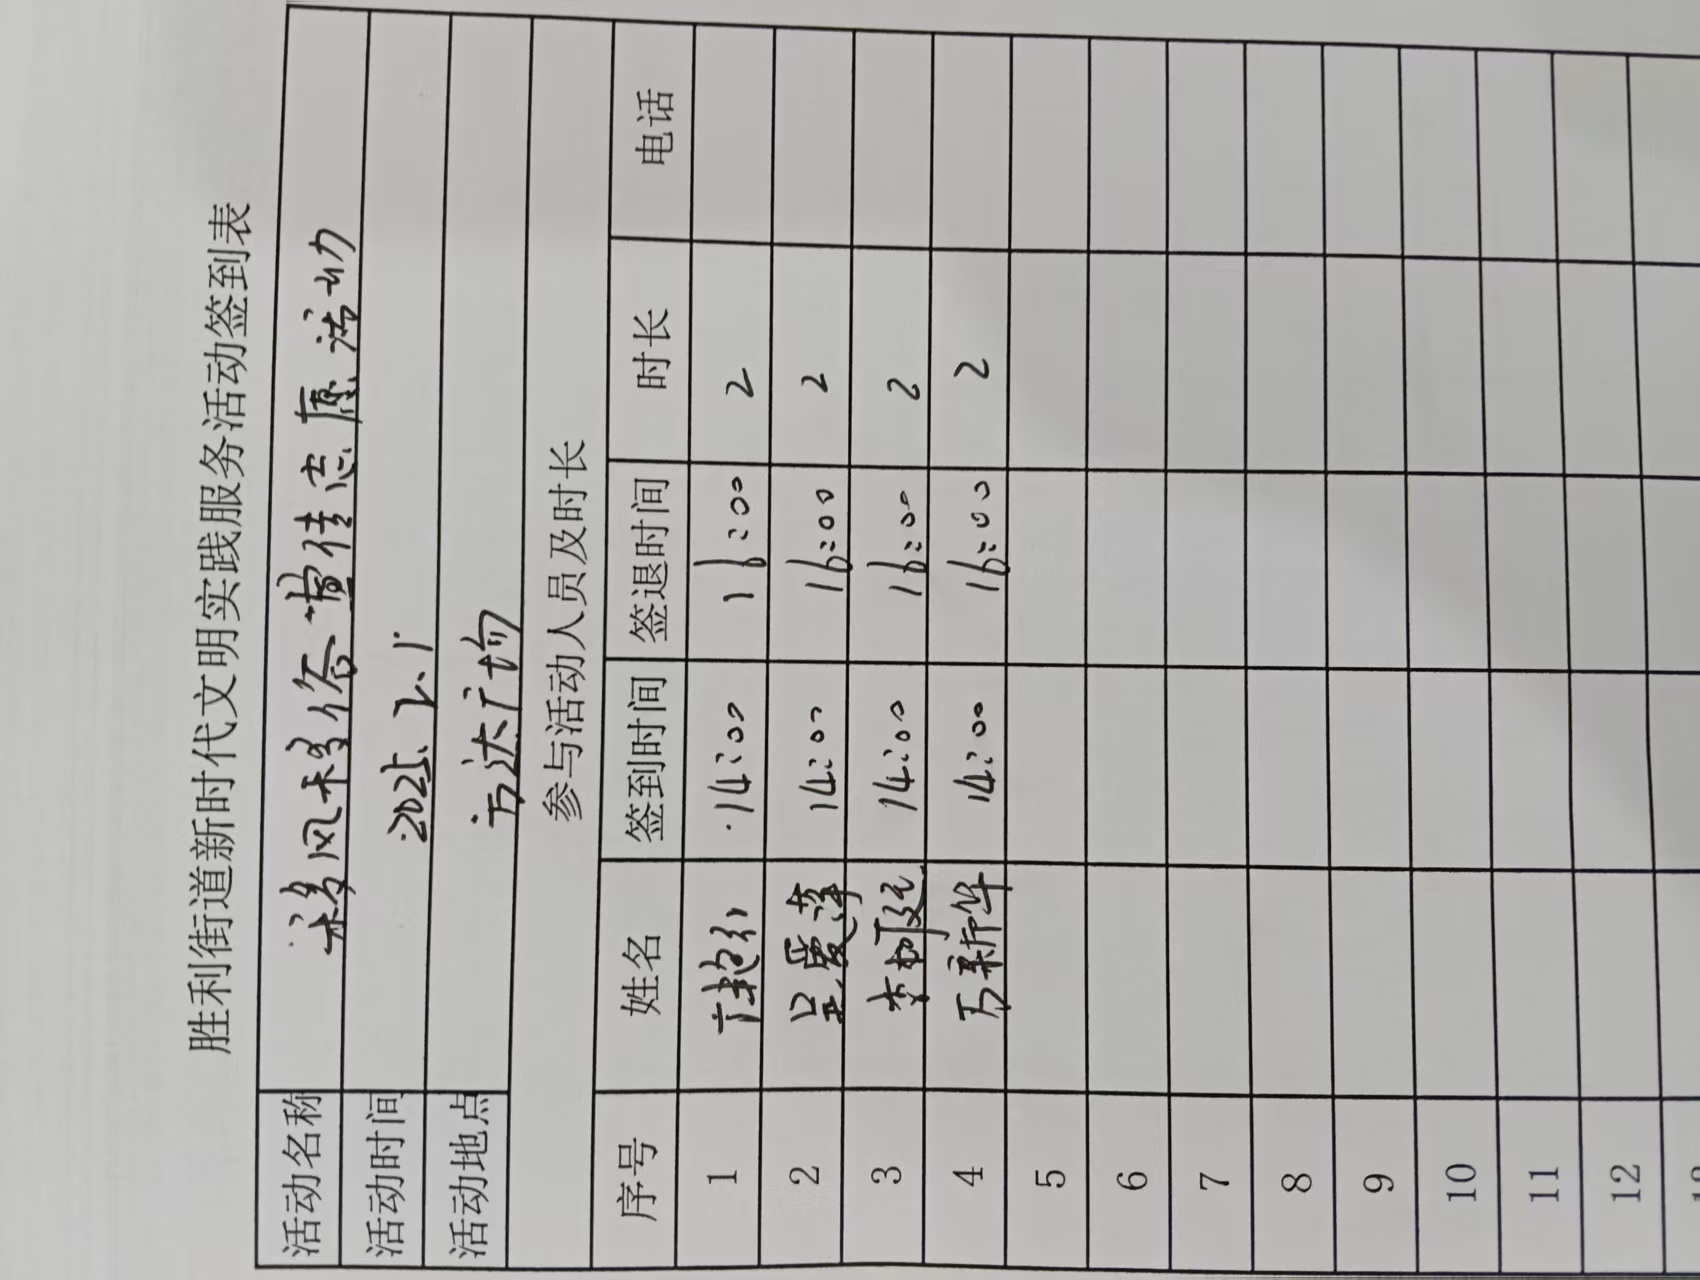 胜利街道新时代文明实践服务活动签到表
活动名称 移风移俗宣传志愿活动
活动时间 2025.2.1
活动地点 万达广场
参与活动人员及时长
序号 姓名 签到时间 签退时间 时长 电话
1 14:00 16:00 2
2 吴爱萍 14:00 16:00 2
3 李 14:00 16:00 2
4 万新华 14:00 16:00 2
5
6
7
8
9
10
11
12